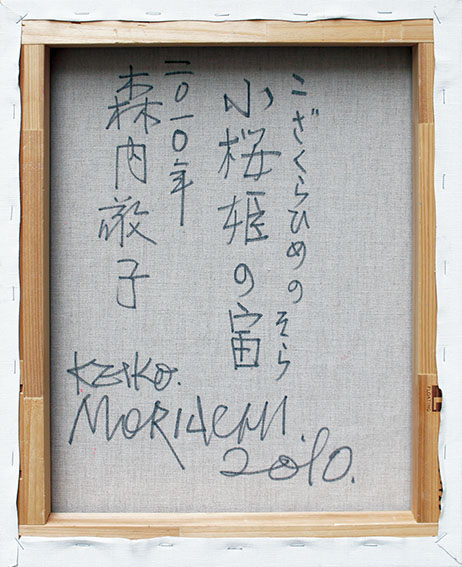 こざくらひめの そら
小桜姫の宙
二〇一〇年
森内敬子
KEIKO.
MORIUCHI.
2010.